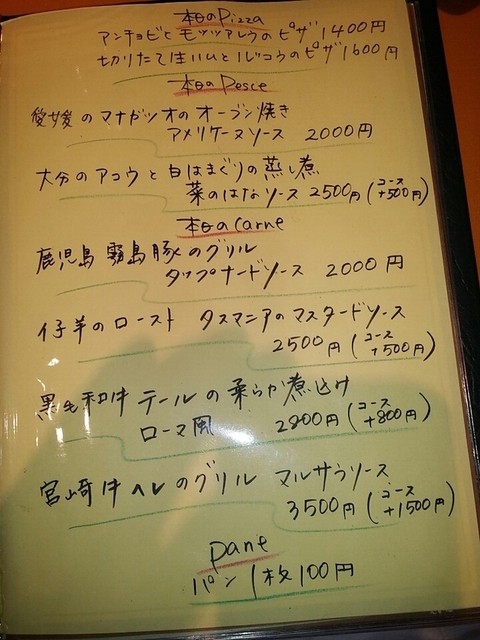 本日のPizza
アンチョビとモッツァレラのピザ 1400円
切りたて生ハムとルッコラのピザ 1600円
本日のPesce
愛媛のマナガツオのオーブン焼き
アメリケーヌソース 2000円
大分のアコウと白はまぐりの蒸し煮
菜のはなソース 2500円(コース+500円)
本日のCarne
鹿児島 霧島豚のグリル
タップナードソース 2000円
仔羊のロースト タスマニアのマスタードソース
2500円(コース+500円)
黒毛和牛 テールの柔らか煮込み
ローマ風 2800円(コース+800円)
宮崎牛ヘレのグリル マルサラソース
3500円(コース+1500円)
pane
パン 1枚100円